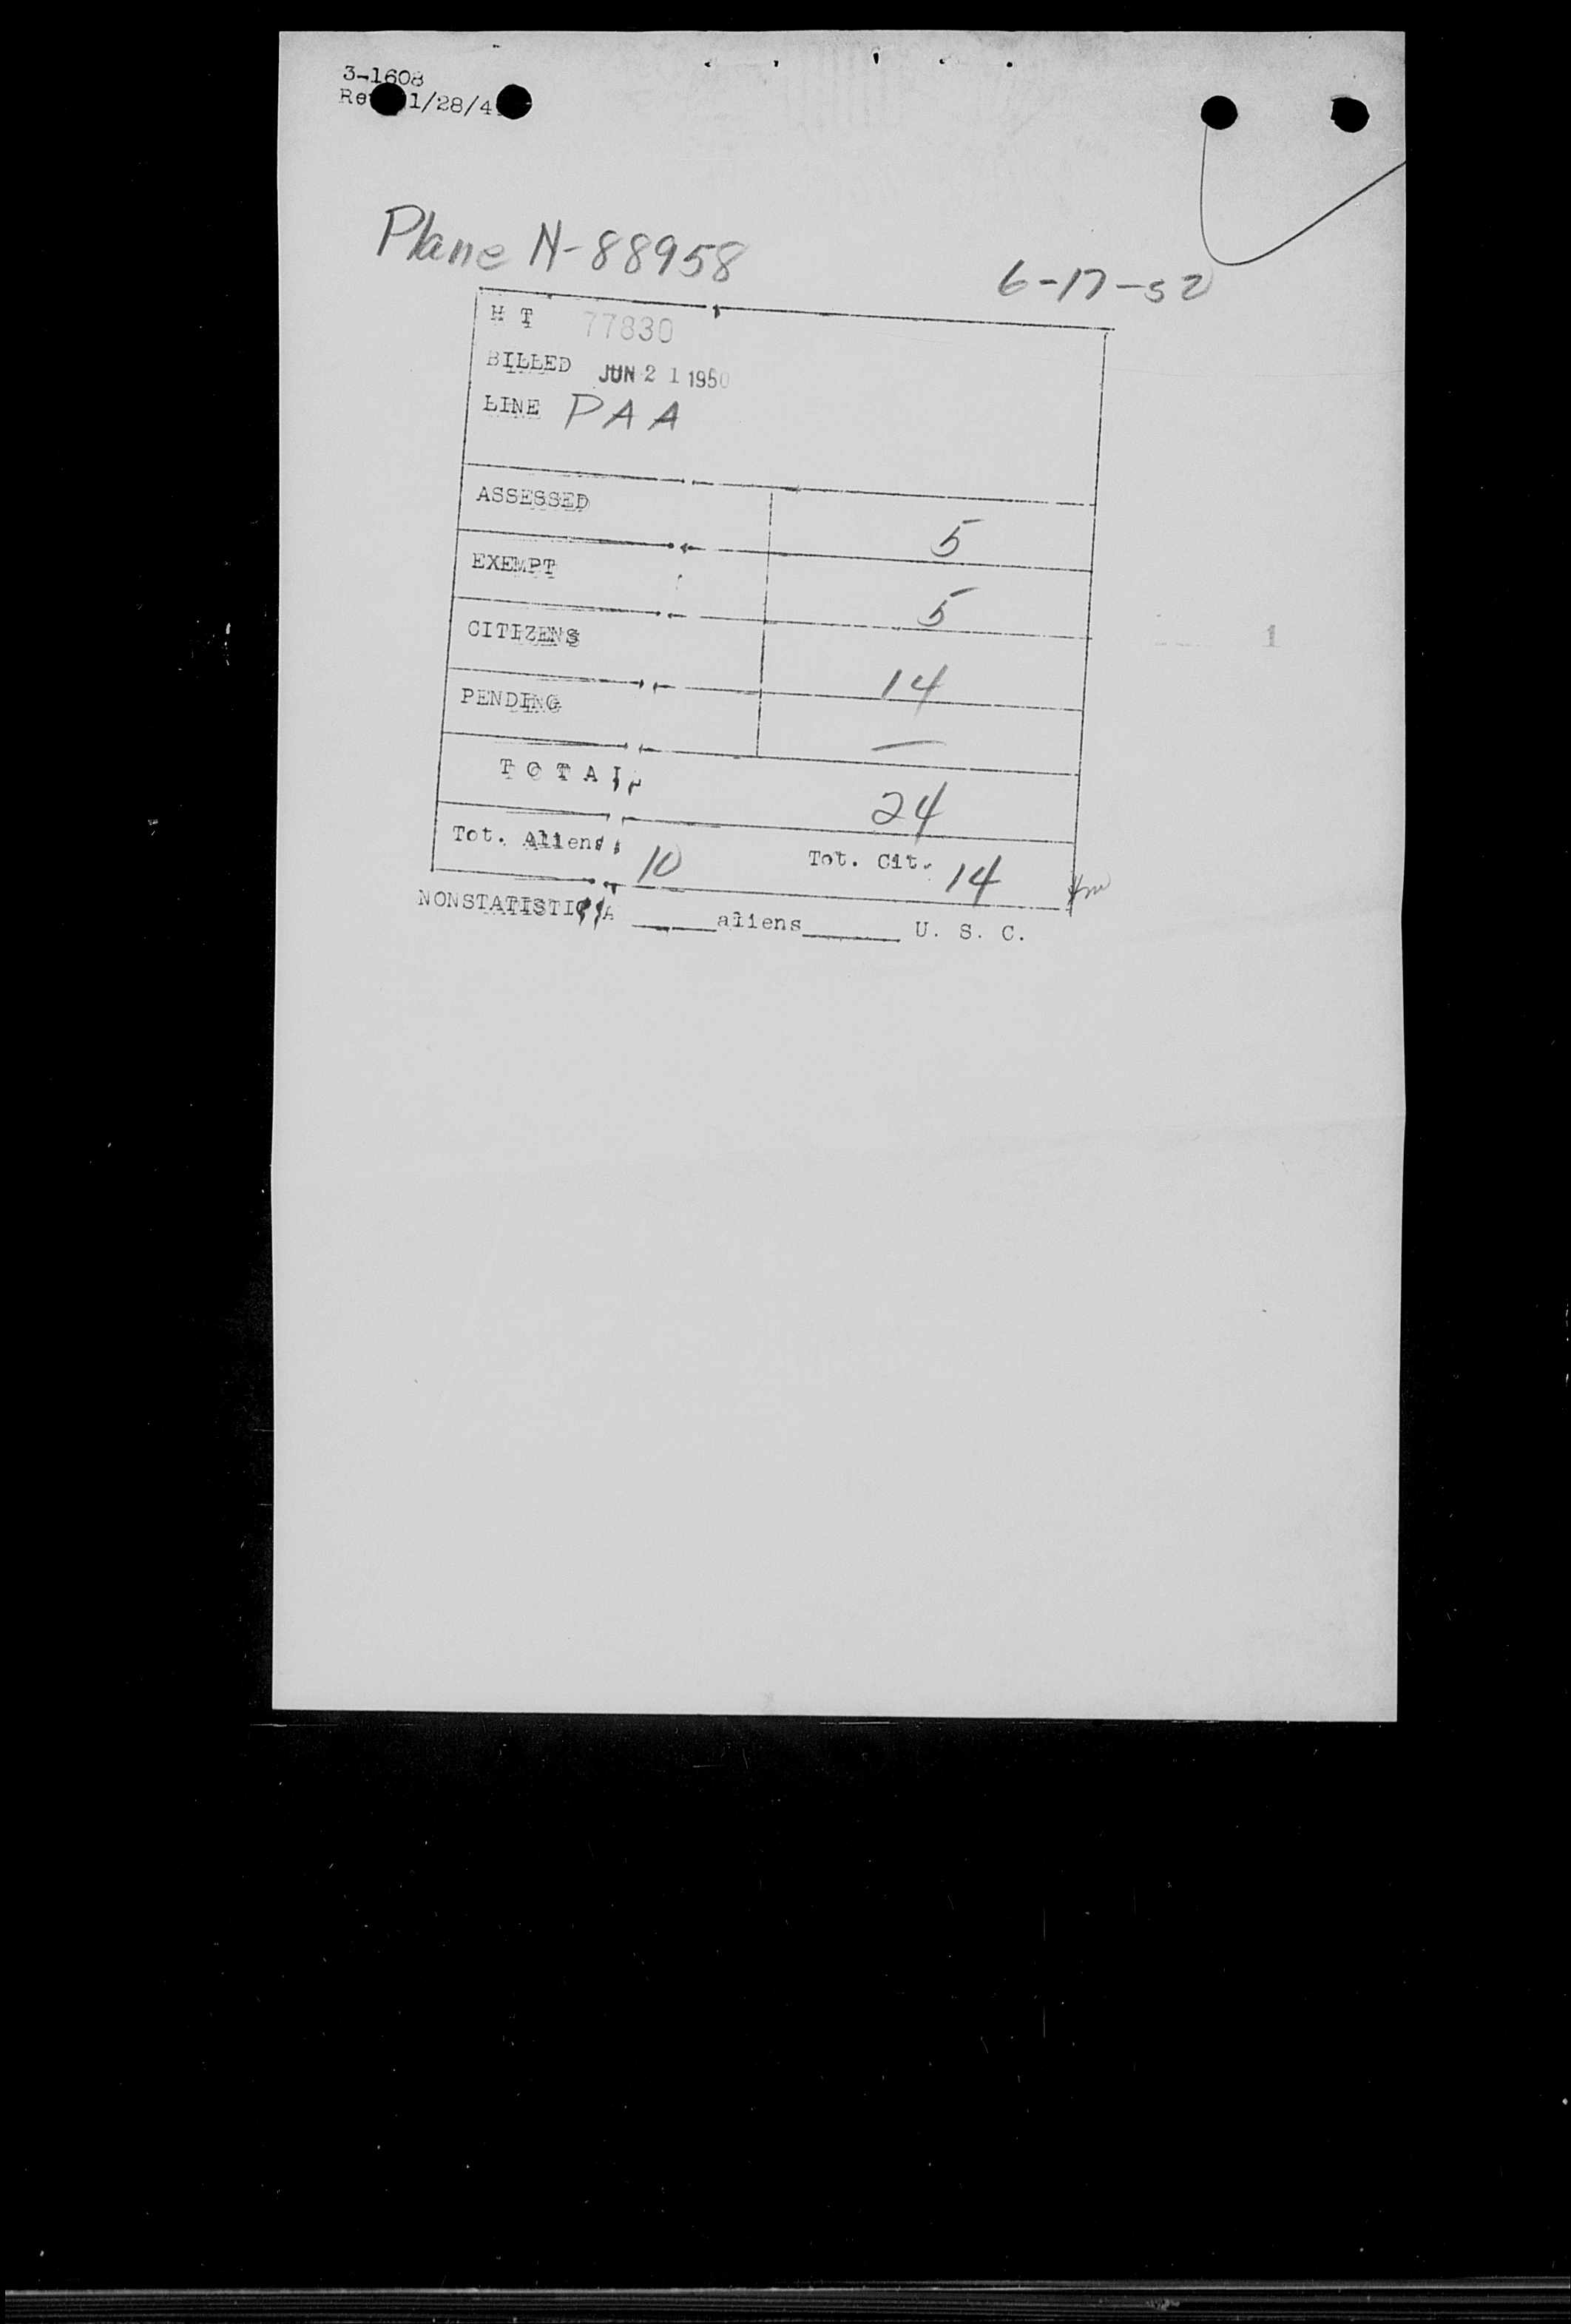 3-1608
1/28/4
Plane N-88958
6-17-50
H T 77830
BILLED JUN 21 1950
LINE PAA
ASSESSED 5
EXEMPT 5
CITIZENS 14
PENDING —
TOTAL 24
Tot. Aliens 10 Tot. Cit. 14
NONSTATISTICAL ____ aliens ____ U. S. C.
1